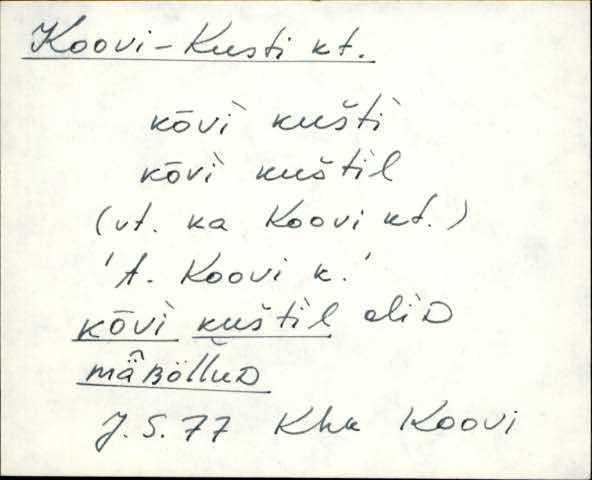 Koovi-Kusti kt.
kōvì kuštì
kōvì kuštìl
(vt. ka Koovi kt.)
'A. Koovi k.'
kōvì kuštìl oliD
mä̂Bö̆lluD
J.S.77 Khk Koovi